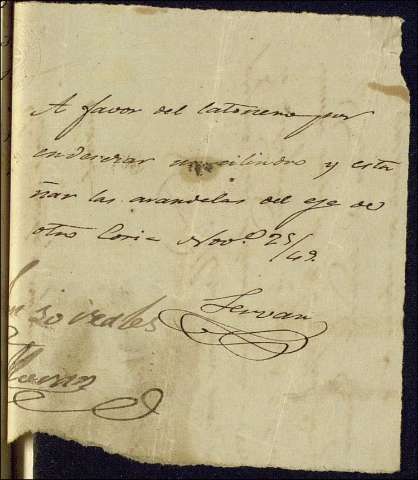 A favor del latonero por
enderezar un cilindro y esta
ñar las arandelas del eje de
otro Coria Nov.e 25/49.
Servan
Son 50 reales